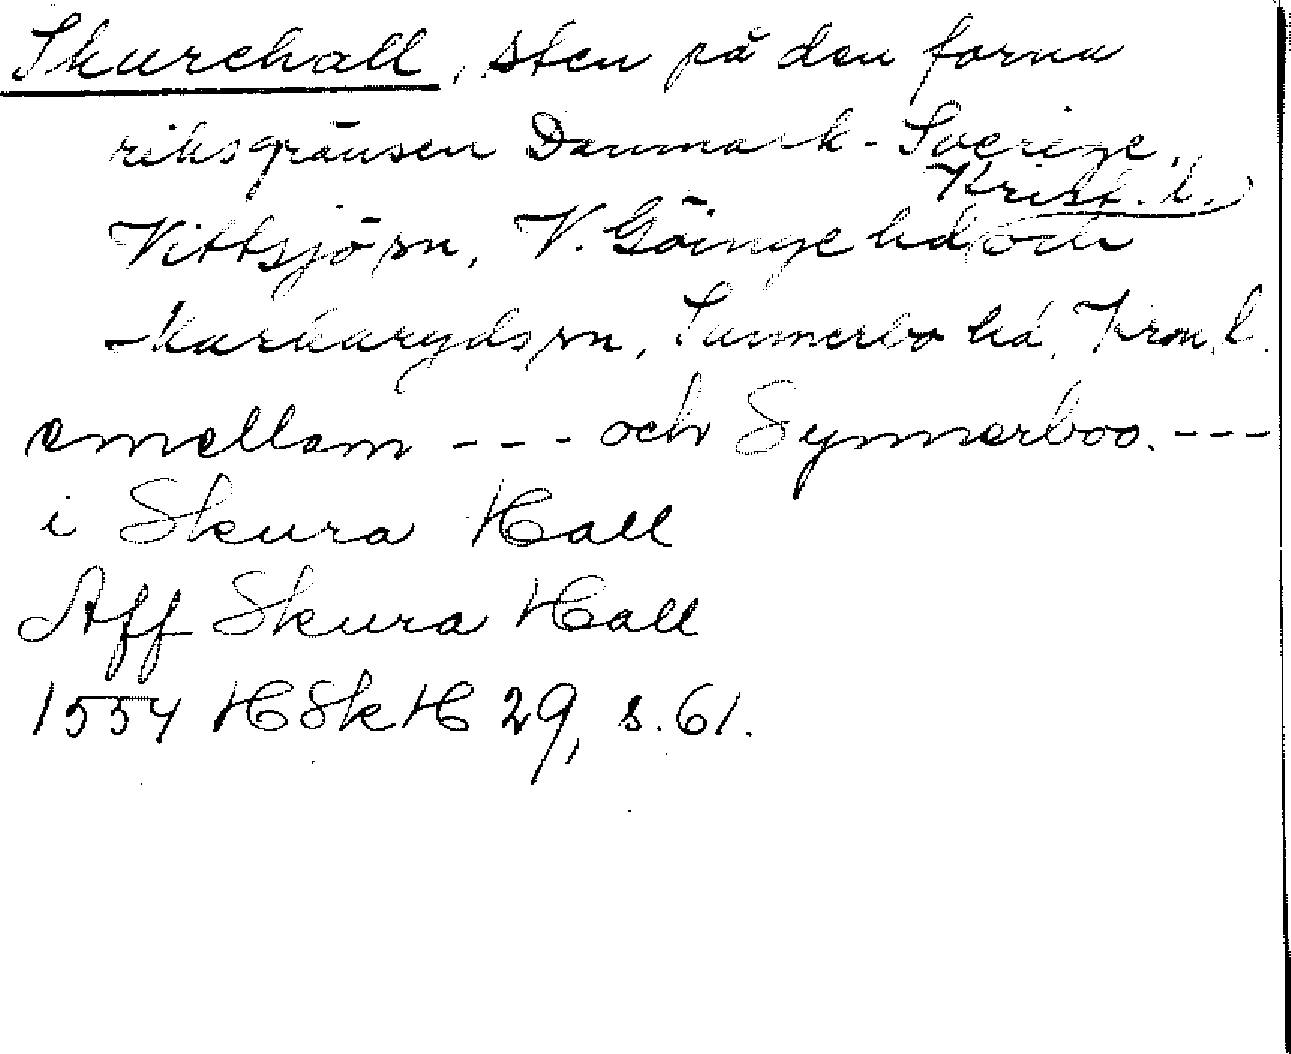 Skurehall, sten på den forna
riksgränsen Danmark - Sverige.
Krist. l.
Vittsjö sn, V. Göinge hd och
Markaryds sn, Sunnerbo hd, Kron. l.
emellom --- och Synnerboo. ---
i Skura Hall
Aff Skura Hall
1554 HSkH 29, s. 61.